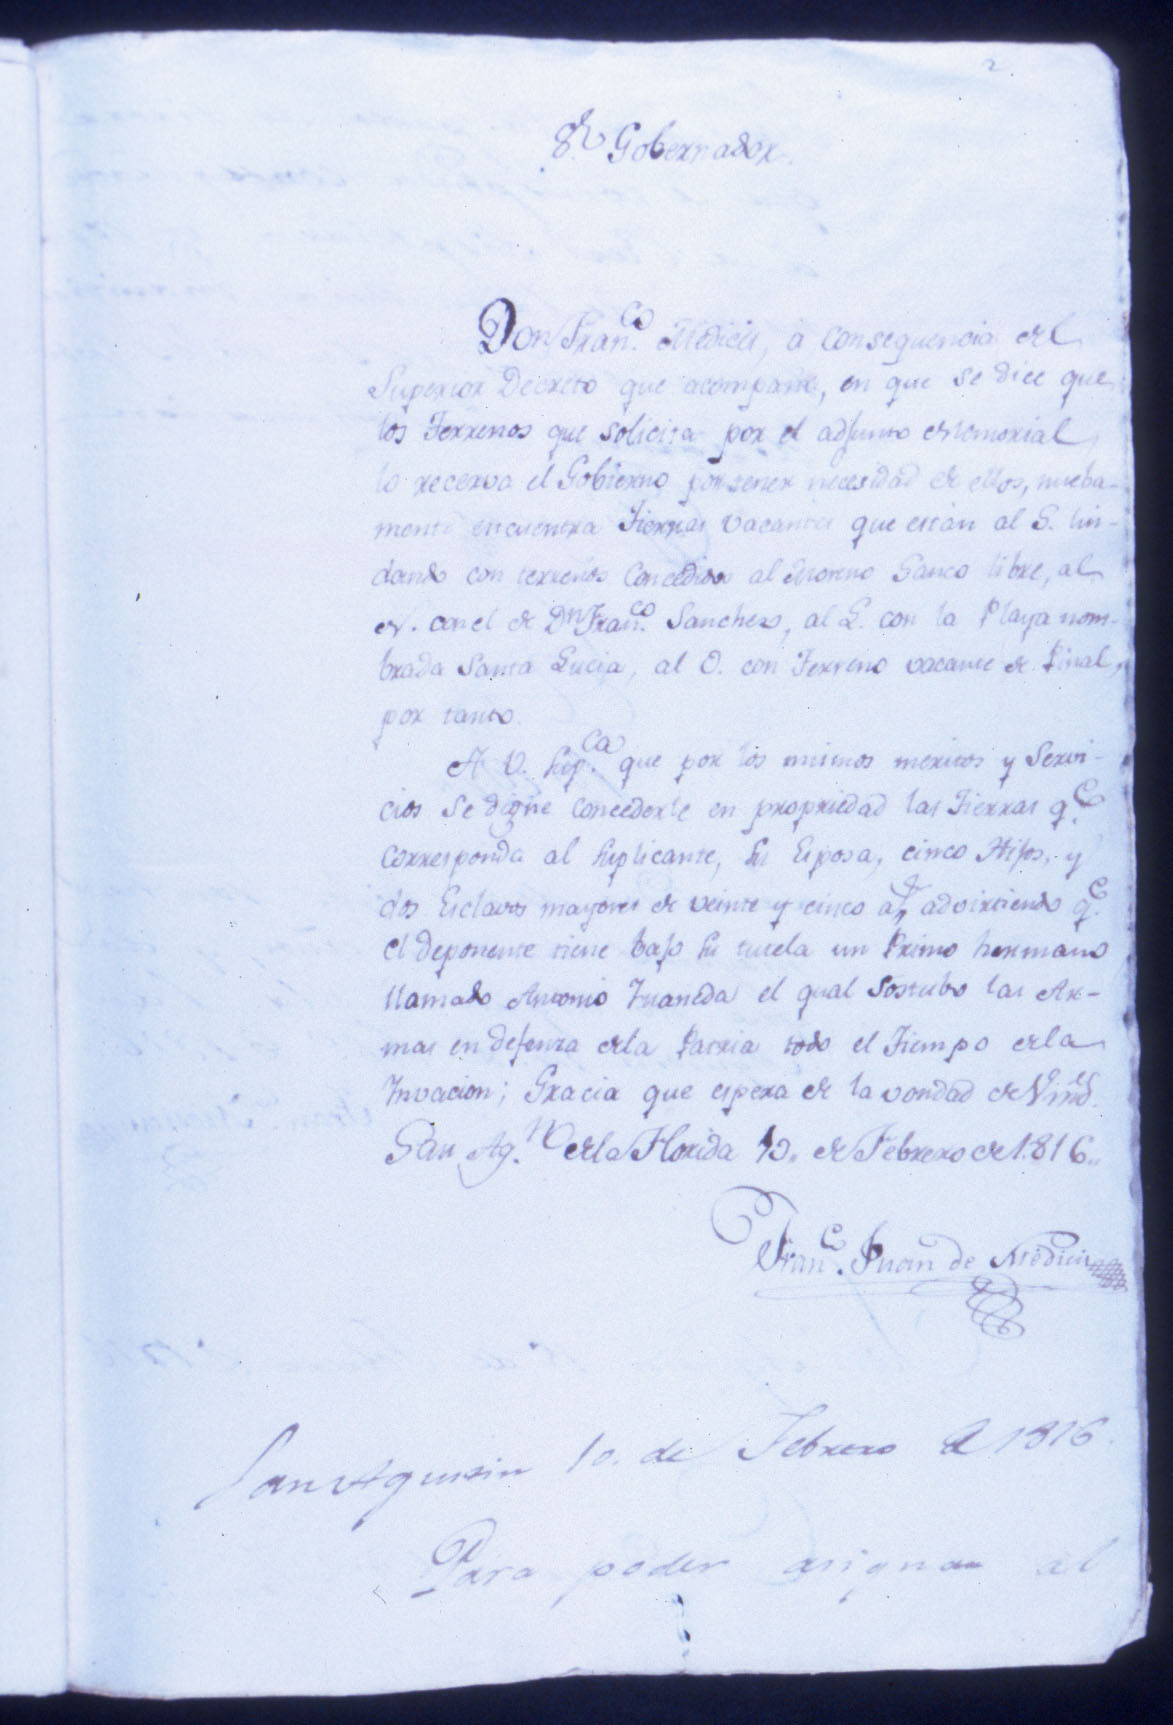 2
Sr. Gobernador.
Don Franco. Medicis, á consequencia del
Superior Decreto que acompaña, en que se dice que
los Terrenos que solicita por el adjunto Memorial
lo recerva el Gobierno por tener necesidad de ellos, nueba-
mente encuentra Tierras vacantes que están al S. lin-
dando con terrenos concedidos al Moreno Sanco libre, al
N. con el de Dn. Franco. Sanches, al E. con la Playa nom-
brada Santa Lucia, al O. con Terreno vacante de Pinal,
por tanto.
A V. Supca. que por los mismos meritos y Servi-
cios se digne concederle en propriedad las Tierras qe.
corresponda al Suplicante, su Esposa, cinco Hijos, y
dos Esclavos mayores de veinte y cinco as. advirtiendo qe.
el deponente tiene bajo su tutela un Primo hermano
llamado Antonio Juaneda el qual sostubo las Ar-
mas en defenza de la Patria todo el Tiempo de la
Invacion; Gracia que espera de la vondad de
San Agn. de la Florida 10,, de Febrero de 1816,,
Franco. Juan de Medicis
San Agustin 10. de Febrero de 1816.
Para poder asignar al